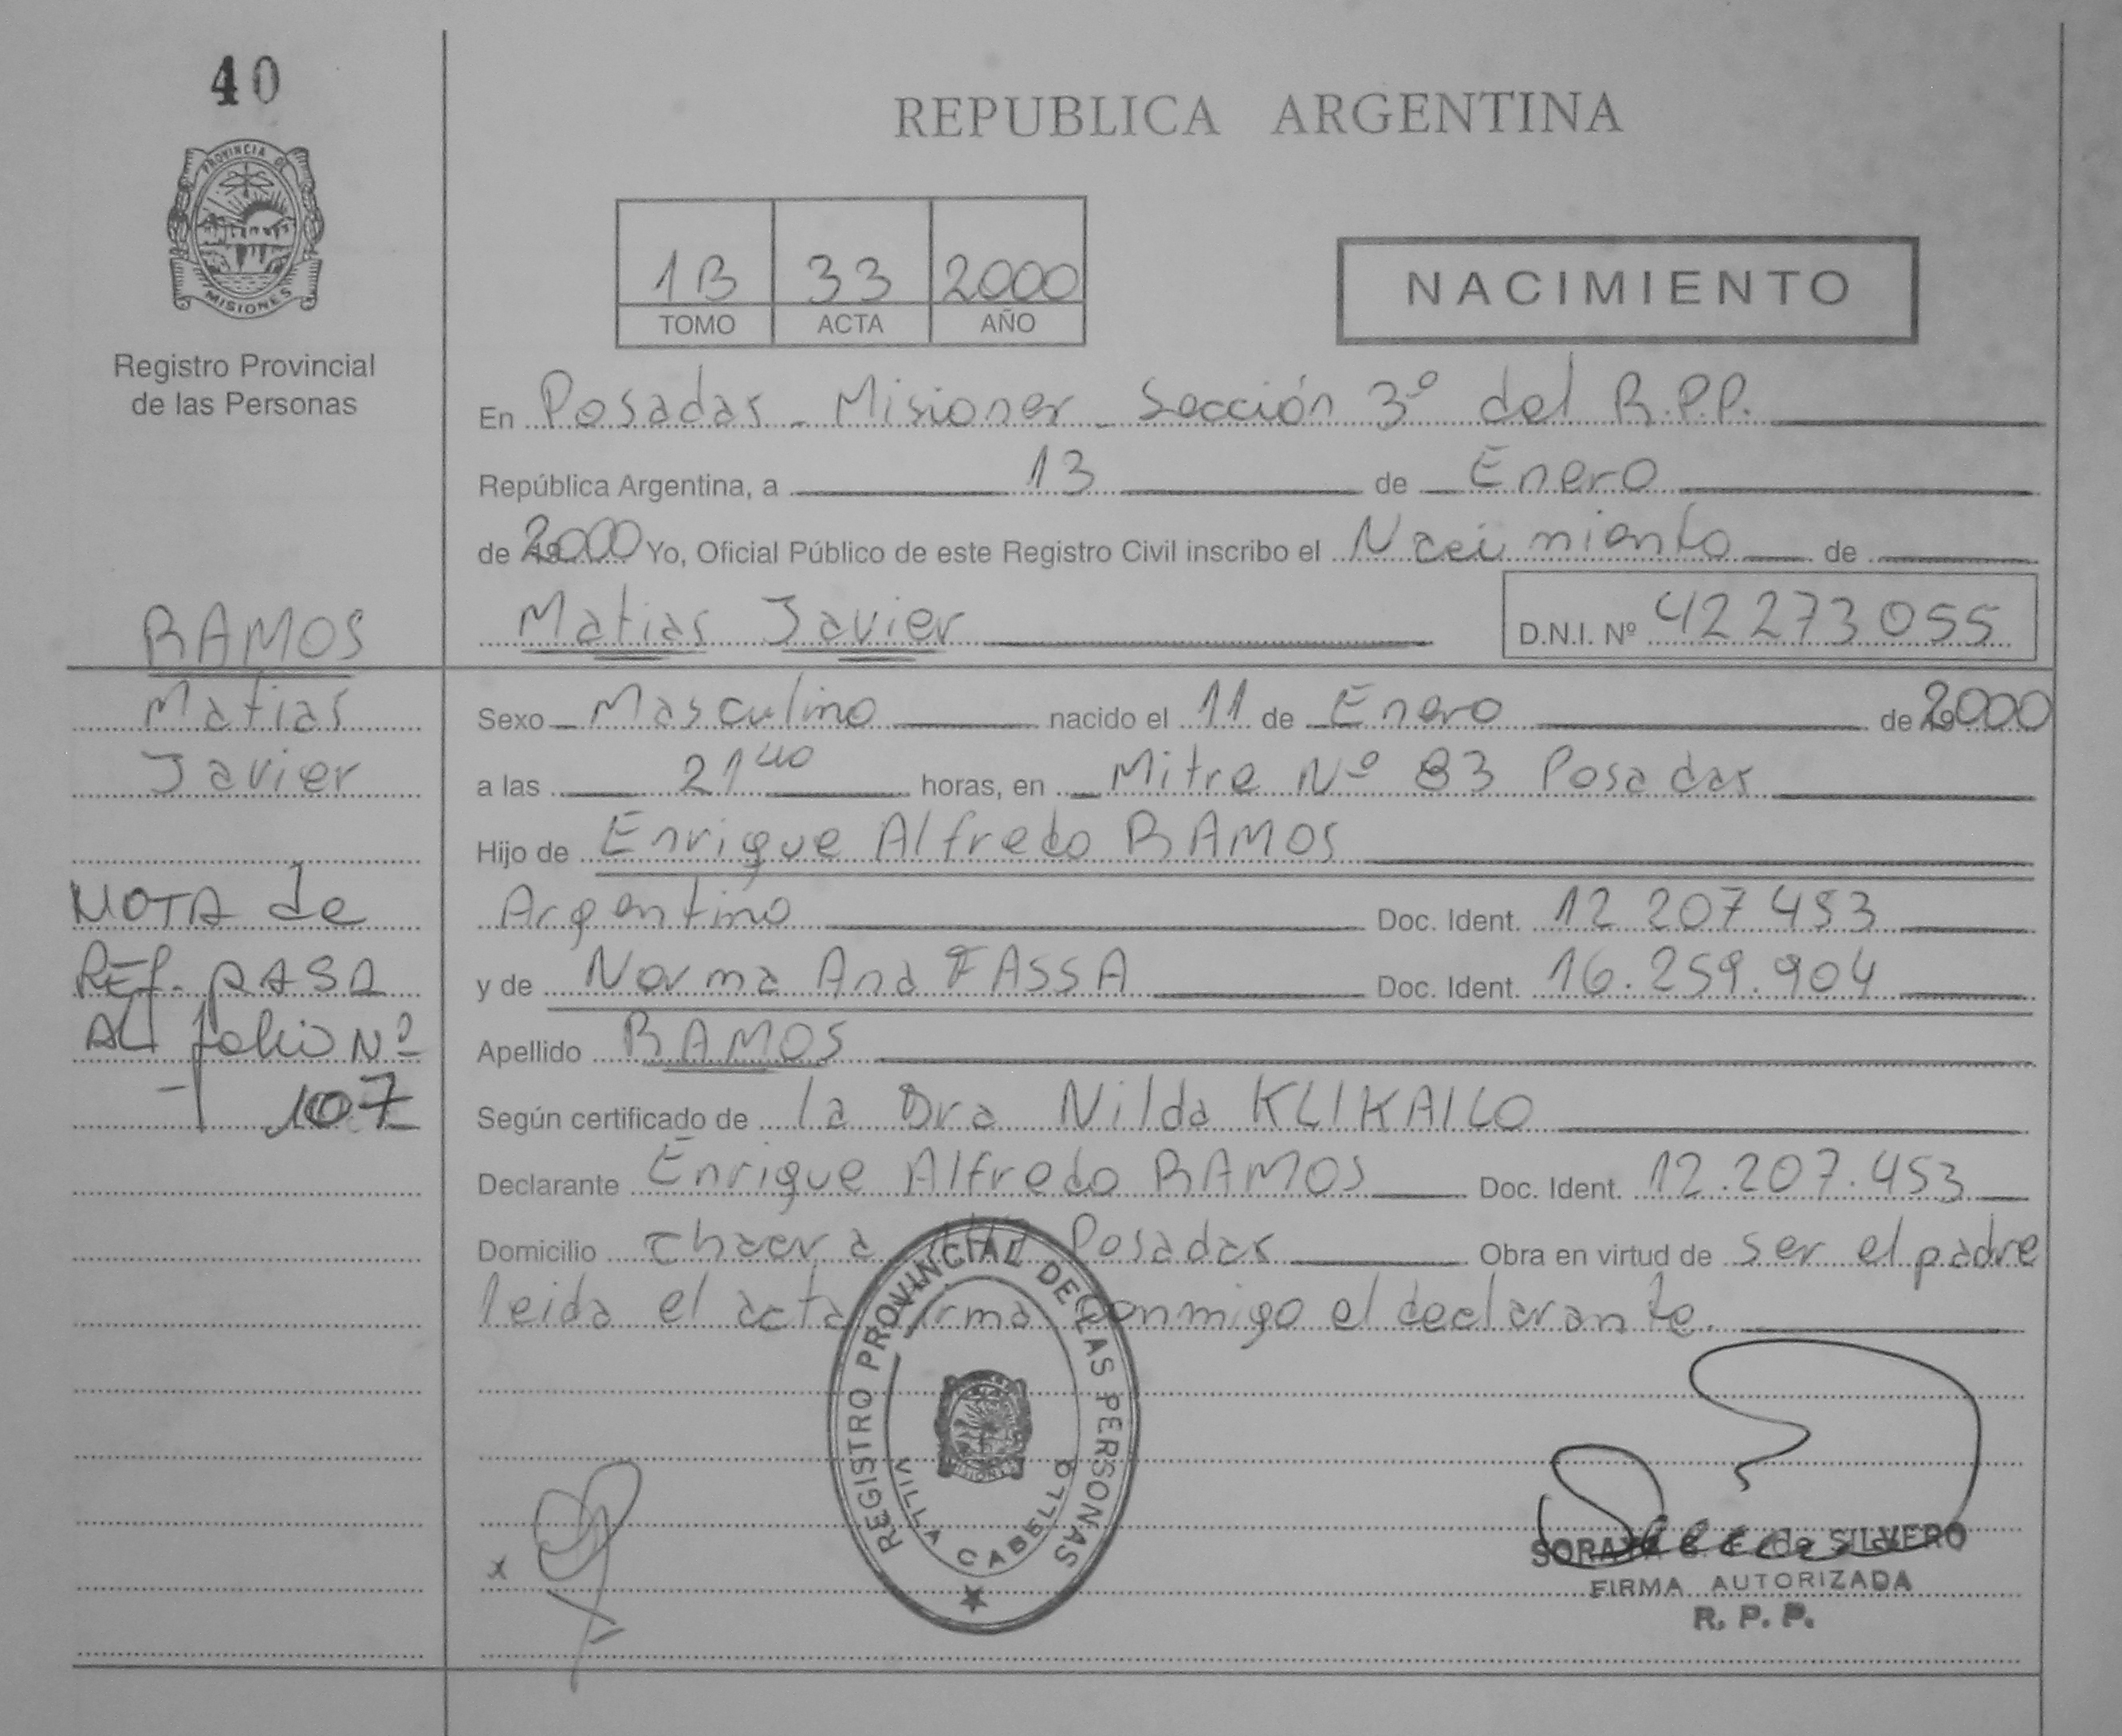 40
REPUBLICA ARGENTINA
PROVINCIA DE
MISIONES
Registro Provincial
de las Personas
1B 33 2000
TOMO ACTA AÑO
NACIMIENTO
En Posadas - Misiones - Sección 3º del R.P.P.
República Argentina, a 13 de Enero
de 2000 Yo, Oficial Público de este Registro Civil inscribo el Nacimiento de
Matias Javier D.N.I. Nº 42 273 055
RAMOS
Matias
Javier
NOTA de
REF. PASA
AL folio Nº
107
Sexo Masculino nacido el 11 de Enero de 2000
a las 21 40 horas, en Mitre Nº 83 Posadas
Hijo de Enrique Alfredo RAMOS
Argentino Doc. Ident. 12 207 453
y de Norma Ana FASSA Doc. Ident. 16.259.904
Apellido RAMOS
Según certificado de la Dra Nilda KLIKAILO
Declarante Enrique Alfredo RAMOS Doc. Ident. 12.207.453
Domicilio Chacra Posadas Obra en virtud de ser el padre
leida el acta firma conmigo el declarante.
REGISTRO PROVINCIAL DE LAS PERSONAS
MISIONES
VILLA CABELLO
x
SORAYA de SILVERO
FIRMA AUTORIZADA
R. P. P.